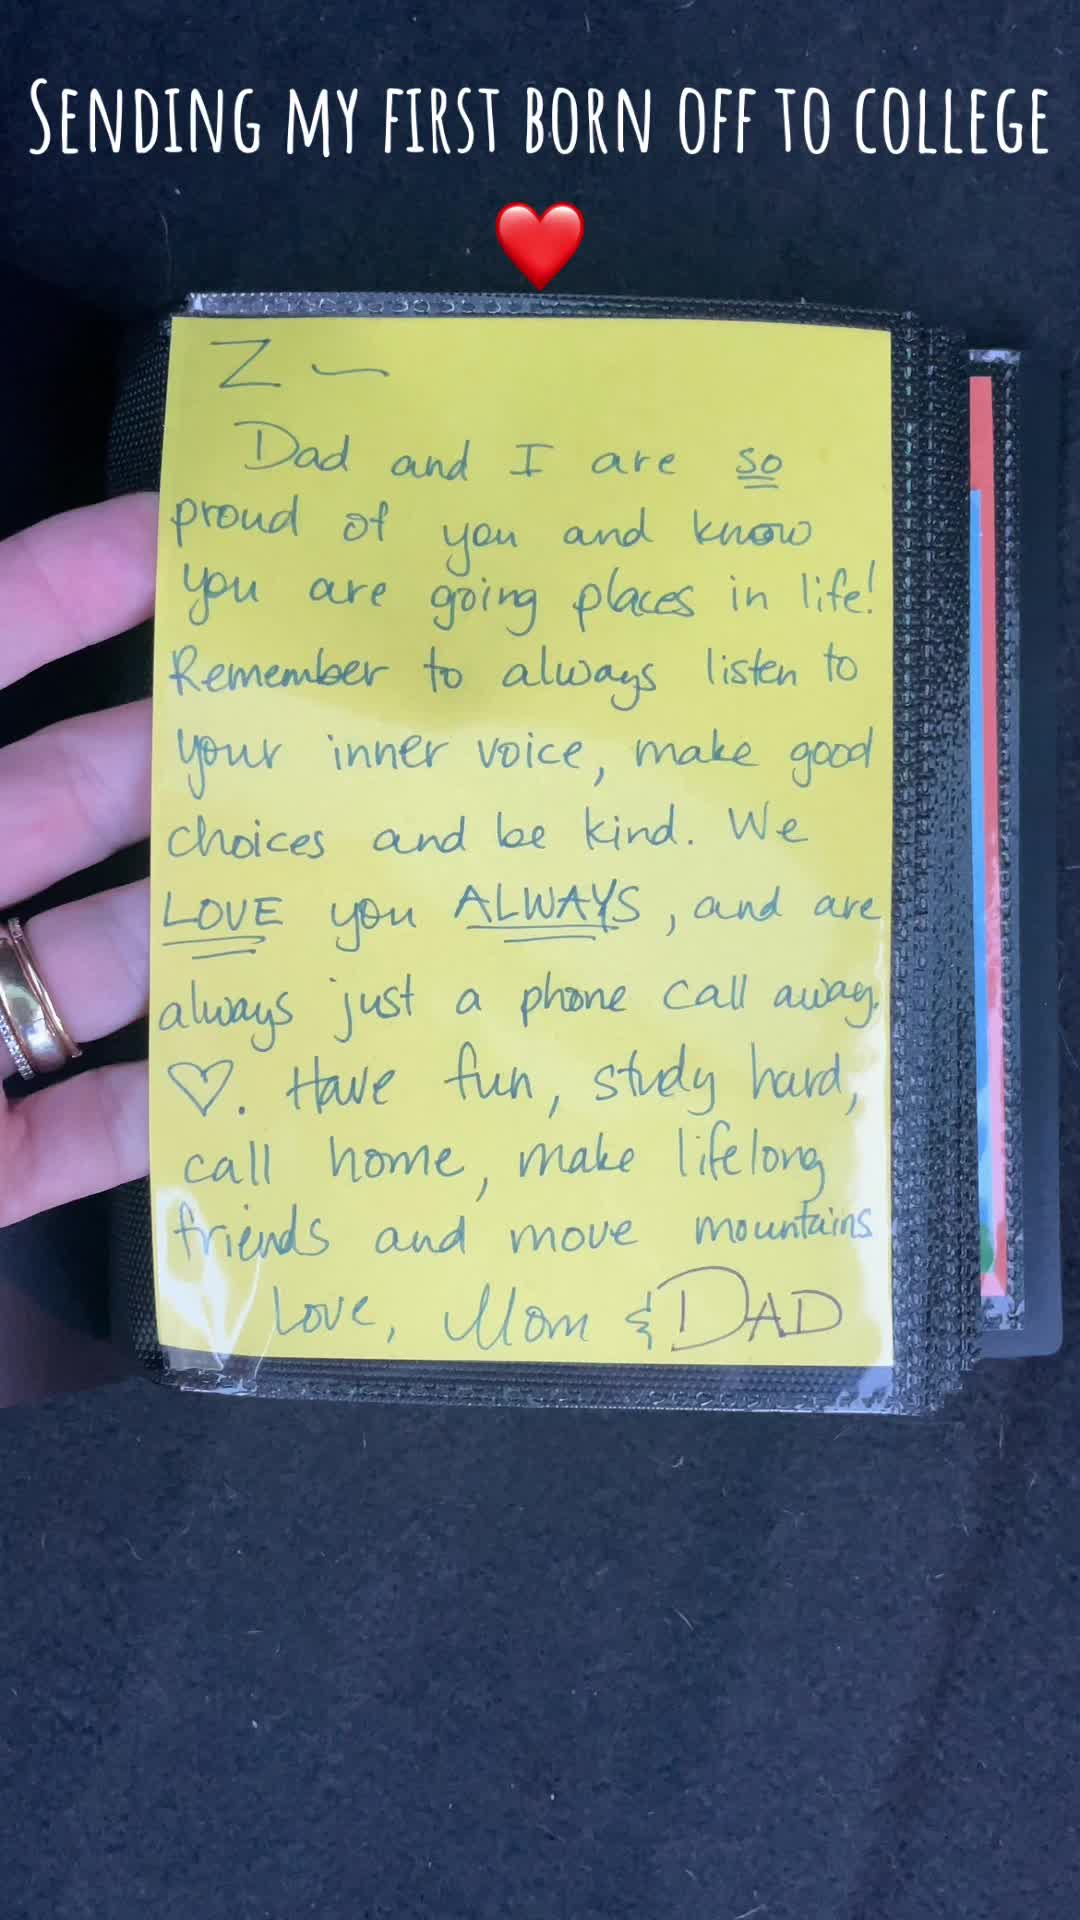 SENDING MY FIRST BORN OFF TO COLLEGE
❤️
Z —
Dad and I are so
proud of you and know
you are going places in life!
Remember to always listen to
your inner voice, make good
choices and be kind. We
LOVE you ALWAYS, and are
always just a phone call away.
♡. Have fun, study hard,
call home, make lifelong
friends and move mountains
Love, Mom & DAD